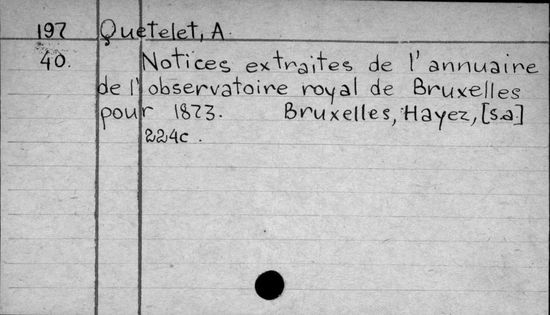 197 Quetelet, A.
40. Notices extraites de l'annuaire
de l'observatoire royal de Bruxelles
pour 1873. Bruxelles, Hayez, [s.a.]
224c.